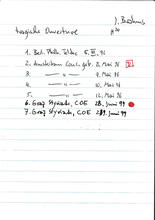 J. Brahms
Tragische Ouverture
1. Berl. Phil. Teldec 5. 96
2. Amsterdam Conc. geb. 2. Mai 96
3. — " — 4. Mai 96
4. — " — 10. Mai 96
5. — " — 12. Mai 96
6. Graz Styriade, COE 28. Juni 99
7. Graz Styriade, COE 29. Juni 99